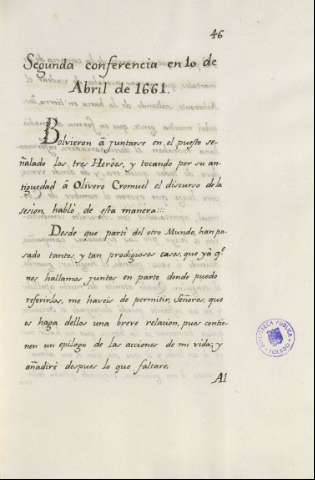 46
Segunda conferencia en 10 de
Abril de 1661.
Bolvieron à juntarse en el puesto se-
ñalado los tres Heròes, y tocando por su an-
tiguedad à Olivero Cromuel el discurso de la
sesion, habló de esta manera:::
Desde que partí del otro Mundo, han pa-
sado tantas, y tan prodigiosas cosas, que ya q.e
nos hallamos juntos en parte donde puedo
referirlas, me haveis de permitir, Señores, que
os haga dellas una breve relacion, pues contie-
nen un epilogo de las acciones de mi vida; y
añadiré despues lo que faltare.
Al
BIBLIOTECA PUBLICA
TOLEDO